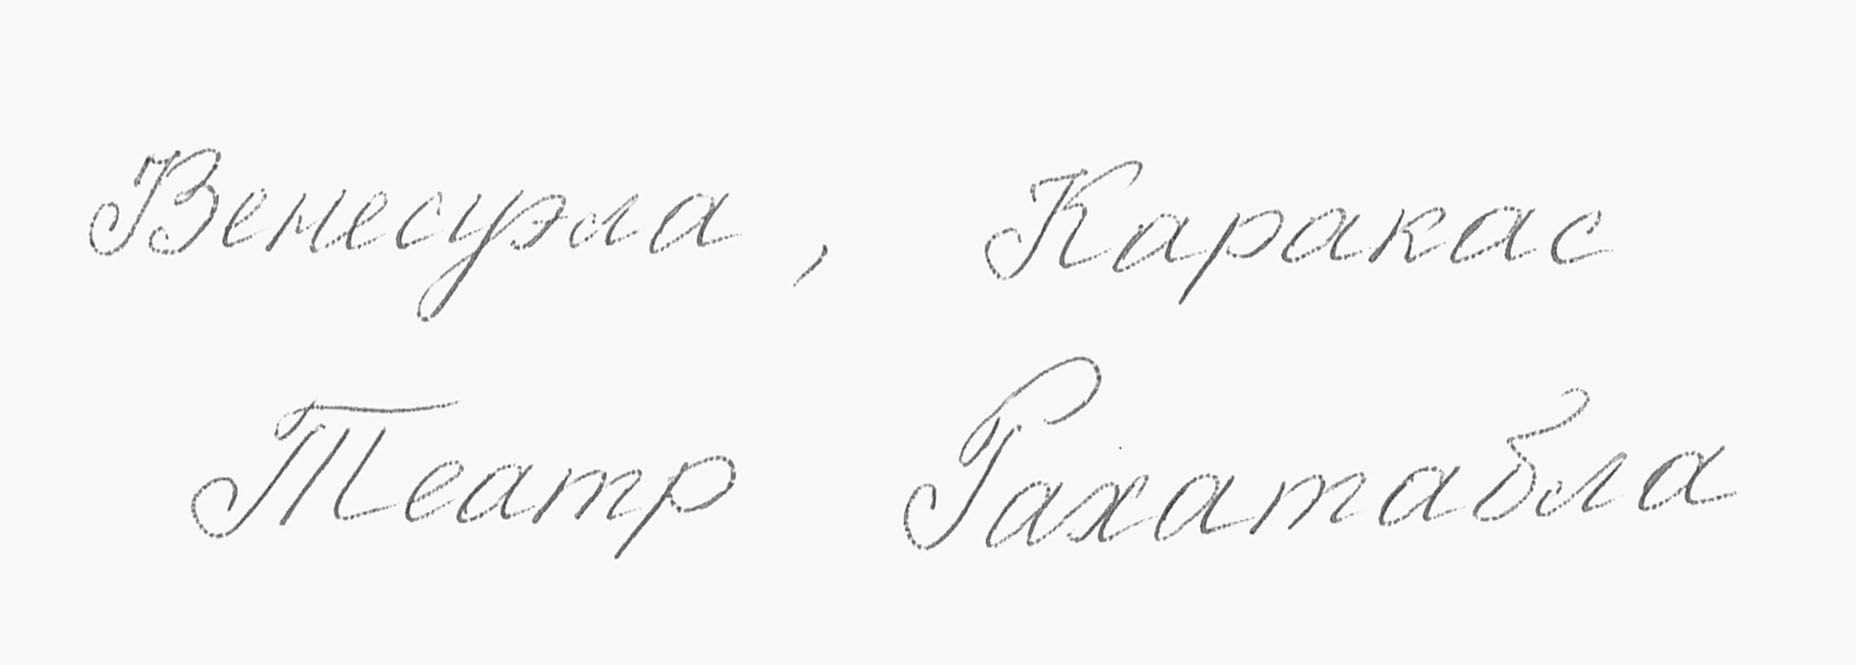 Венесуэла, Каракас
Театр Рахатабла